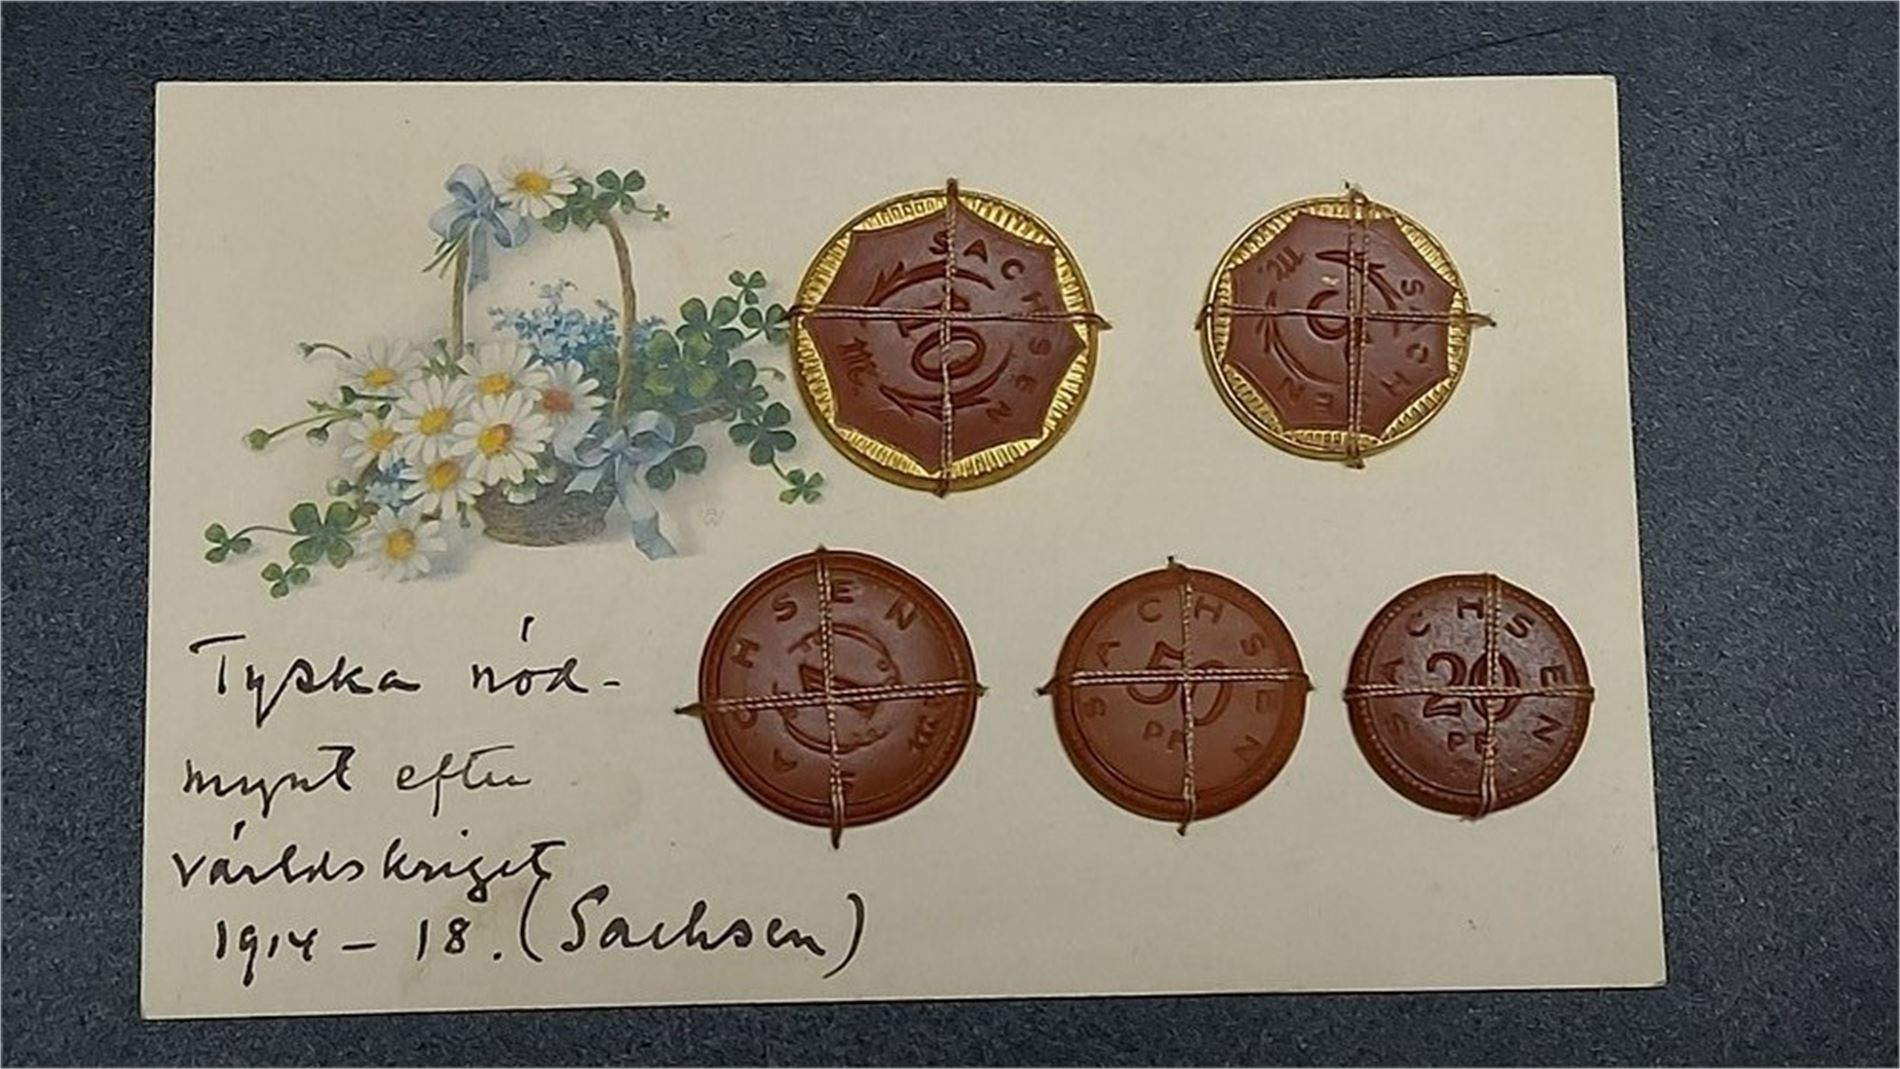 SACHSEN
10
M.
SACHSEN
5
M.
SACHSEN
1
M.
SACHSEN
50
PF
SACHSEN
20
PF
Tyska nöd-
mynt efter
världskriget
1914 - 18. (Sachsen)